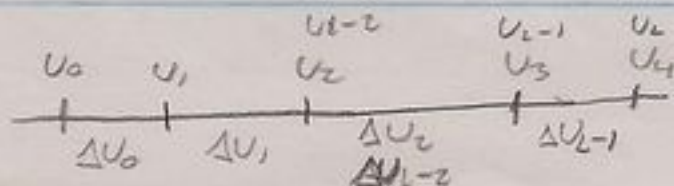 U2-2 UL-1 UL
U0 U1 U2 U3 U4
ΔU0 ΔU1 ΔU2 ΔUL-1
ΔUL-2